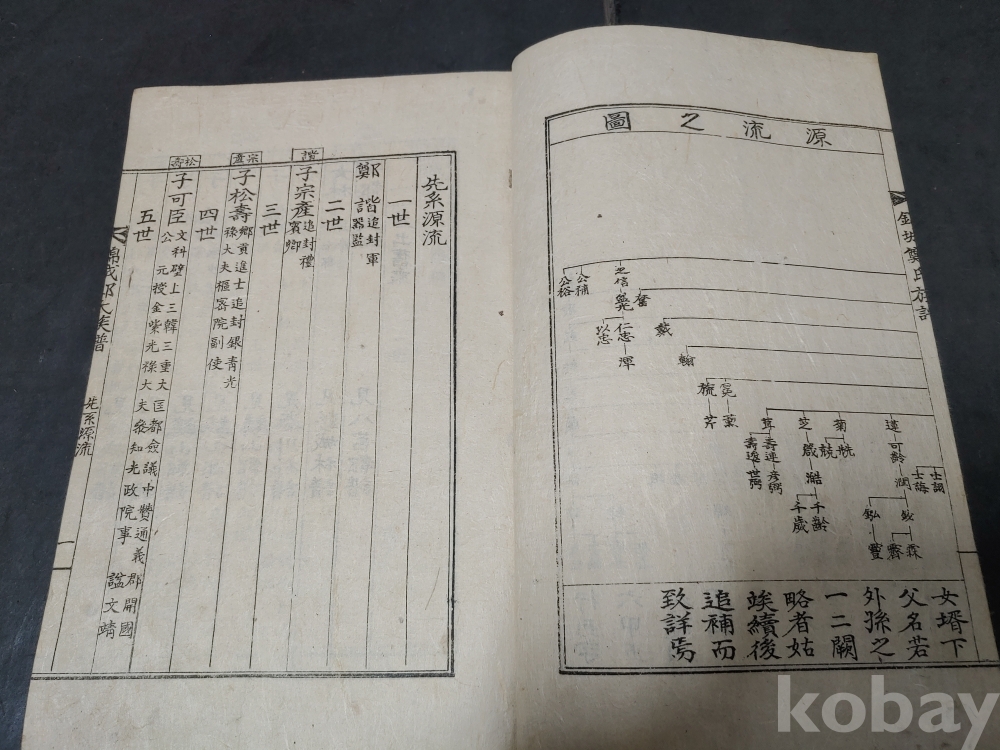 源流之圖
錦城鄭氏族譜
公裕
公補
之信
奮
以忠
仁忠
渾
戴
翱
旒
冕
芹
薰
茸
壽連
彦弼
壽遐
世弼
芝
歲
澔
千歲
千齡
菊
兢
達
可齡
潤
士誨
士詗
豐
霖
女壻下
父名若
外孫之
一二闕
略者姑
竢續後
追補而
致詳焉
先系源流
一世
鄭諧 追封軍器監
二世
諧
子宗產 追封禮賓卿
三世
宗產
子松壽 鄉貢進士追封銀青光祿大夫樞密院副使
四世
松壽
子可臣 文科壁上三韓三重大匡都僉議中贊通義郡開國公元授金紫光祿大夫叅知光政院事諡文靖
五世
錦城鄭氏族譜
先系源流
一
kobay